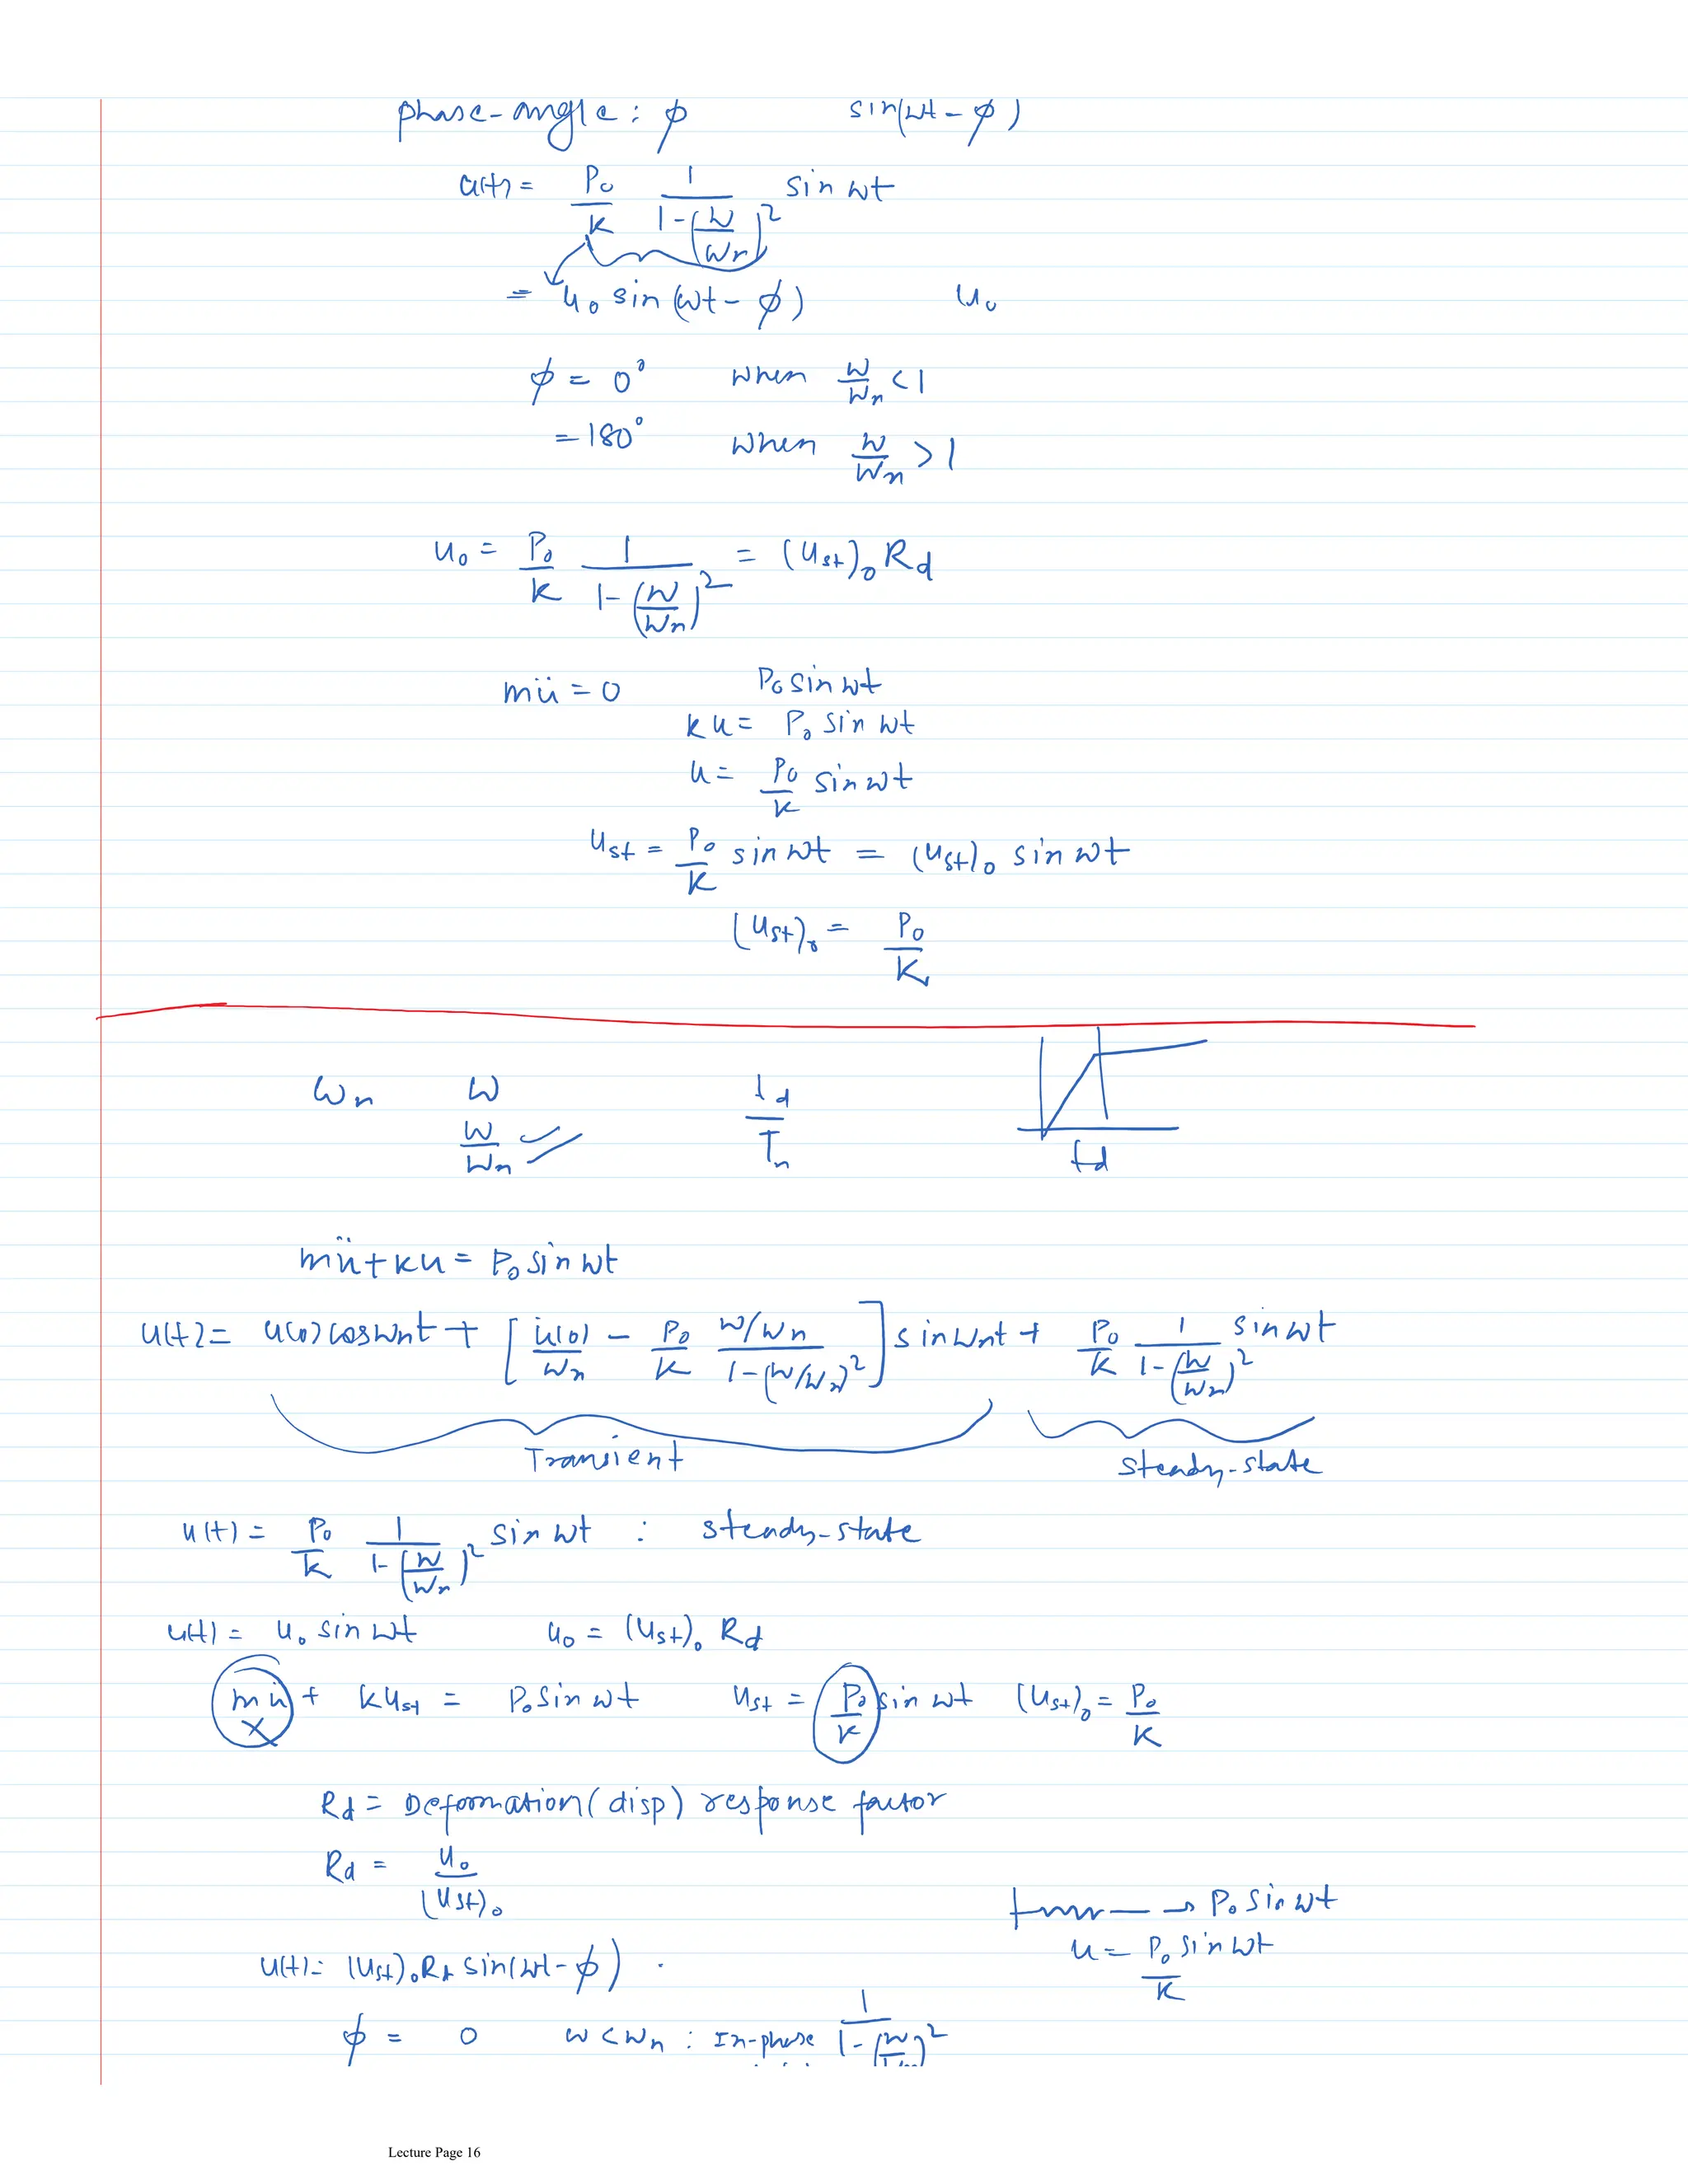 phase-angle: φ sin(ωt - φ)
u(t) = P₀/k 1/(1-(ω/ωn)²) sin ωt
= u₀ sin(ωt - φ) u₀
φ = 0° when ω/ωn < 1
= 180° when ω/ωn > 1
u₀ = P₀/k 1/(1-(ω/ωn)²) = (ust)₀ Rd
mü = 0 P₀ sin ωt
ku = P₀ sin ωt
u = P₀/k sin ωt
ust = P₀/k sin ωt = (ust)₀ sin ωt
(ust)₀ = P₀/k
ωn ω td/Tn
ω/ωn td
mü + ku = P₀ sin ωt
u(t) = u(0) cos ωnt + [u̇(0)/ωn - P₀/k (ω/ωn)/(1-(ω/ωn)²)] sin ωnt + P₀/k 1/(1-(ω/ωn)²) sin ωt
Transient steady-state
u(t) = P₀/k 1/(1-(ω/ωn)²) sin ωt : steady-state
u(t) = u₀ sin ωt u₀ = (ust)₀ Rd
mü + kust = P₀ sin ωt ust = P₀/k sin ωt (ust)₀ = P₀/k
X
Rd = Deformation (disp) response factor
Rd = u₀/(ust)₀
→ P₀ sin ωt
u = P₀/k sin ωt
u(t) = (ust)₀ Rd sin(ωt - φ)
φ = 0 ω < ωn : In-phase 1/(1-(ω/ωn)²)
Lecture Page 16